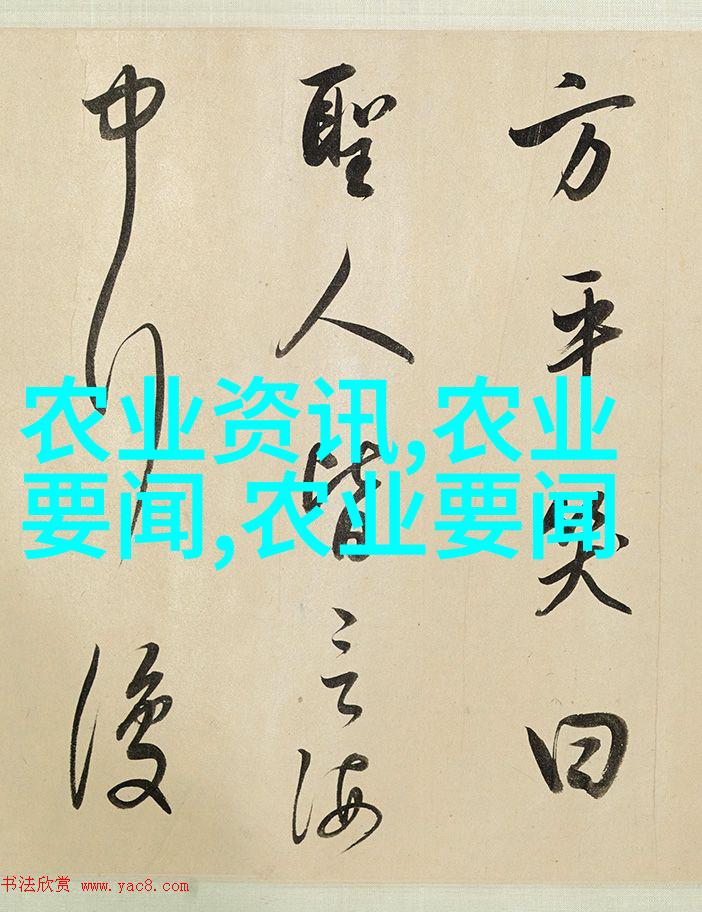 方平笑曰
聖人皆言海
中行復
农业资讯,农业
要闻,农业要闻
书法欣赏 www.yac8.com